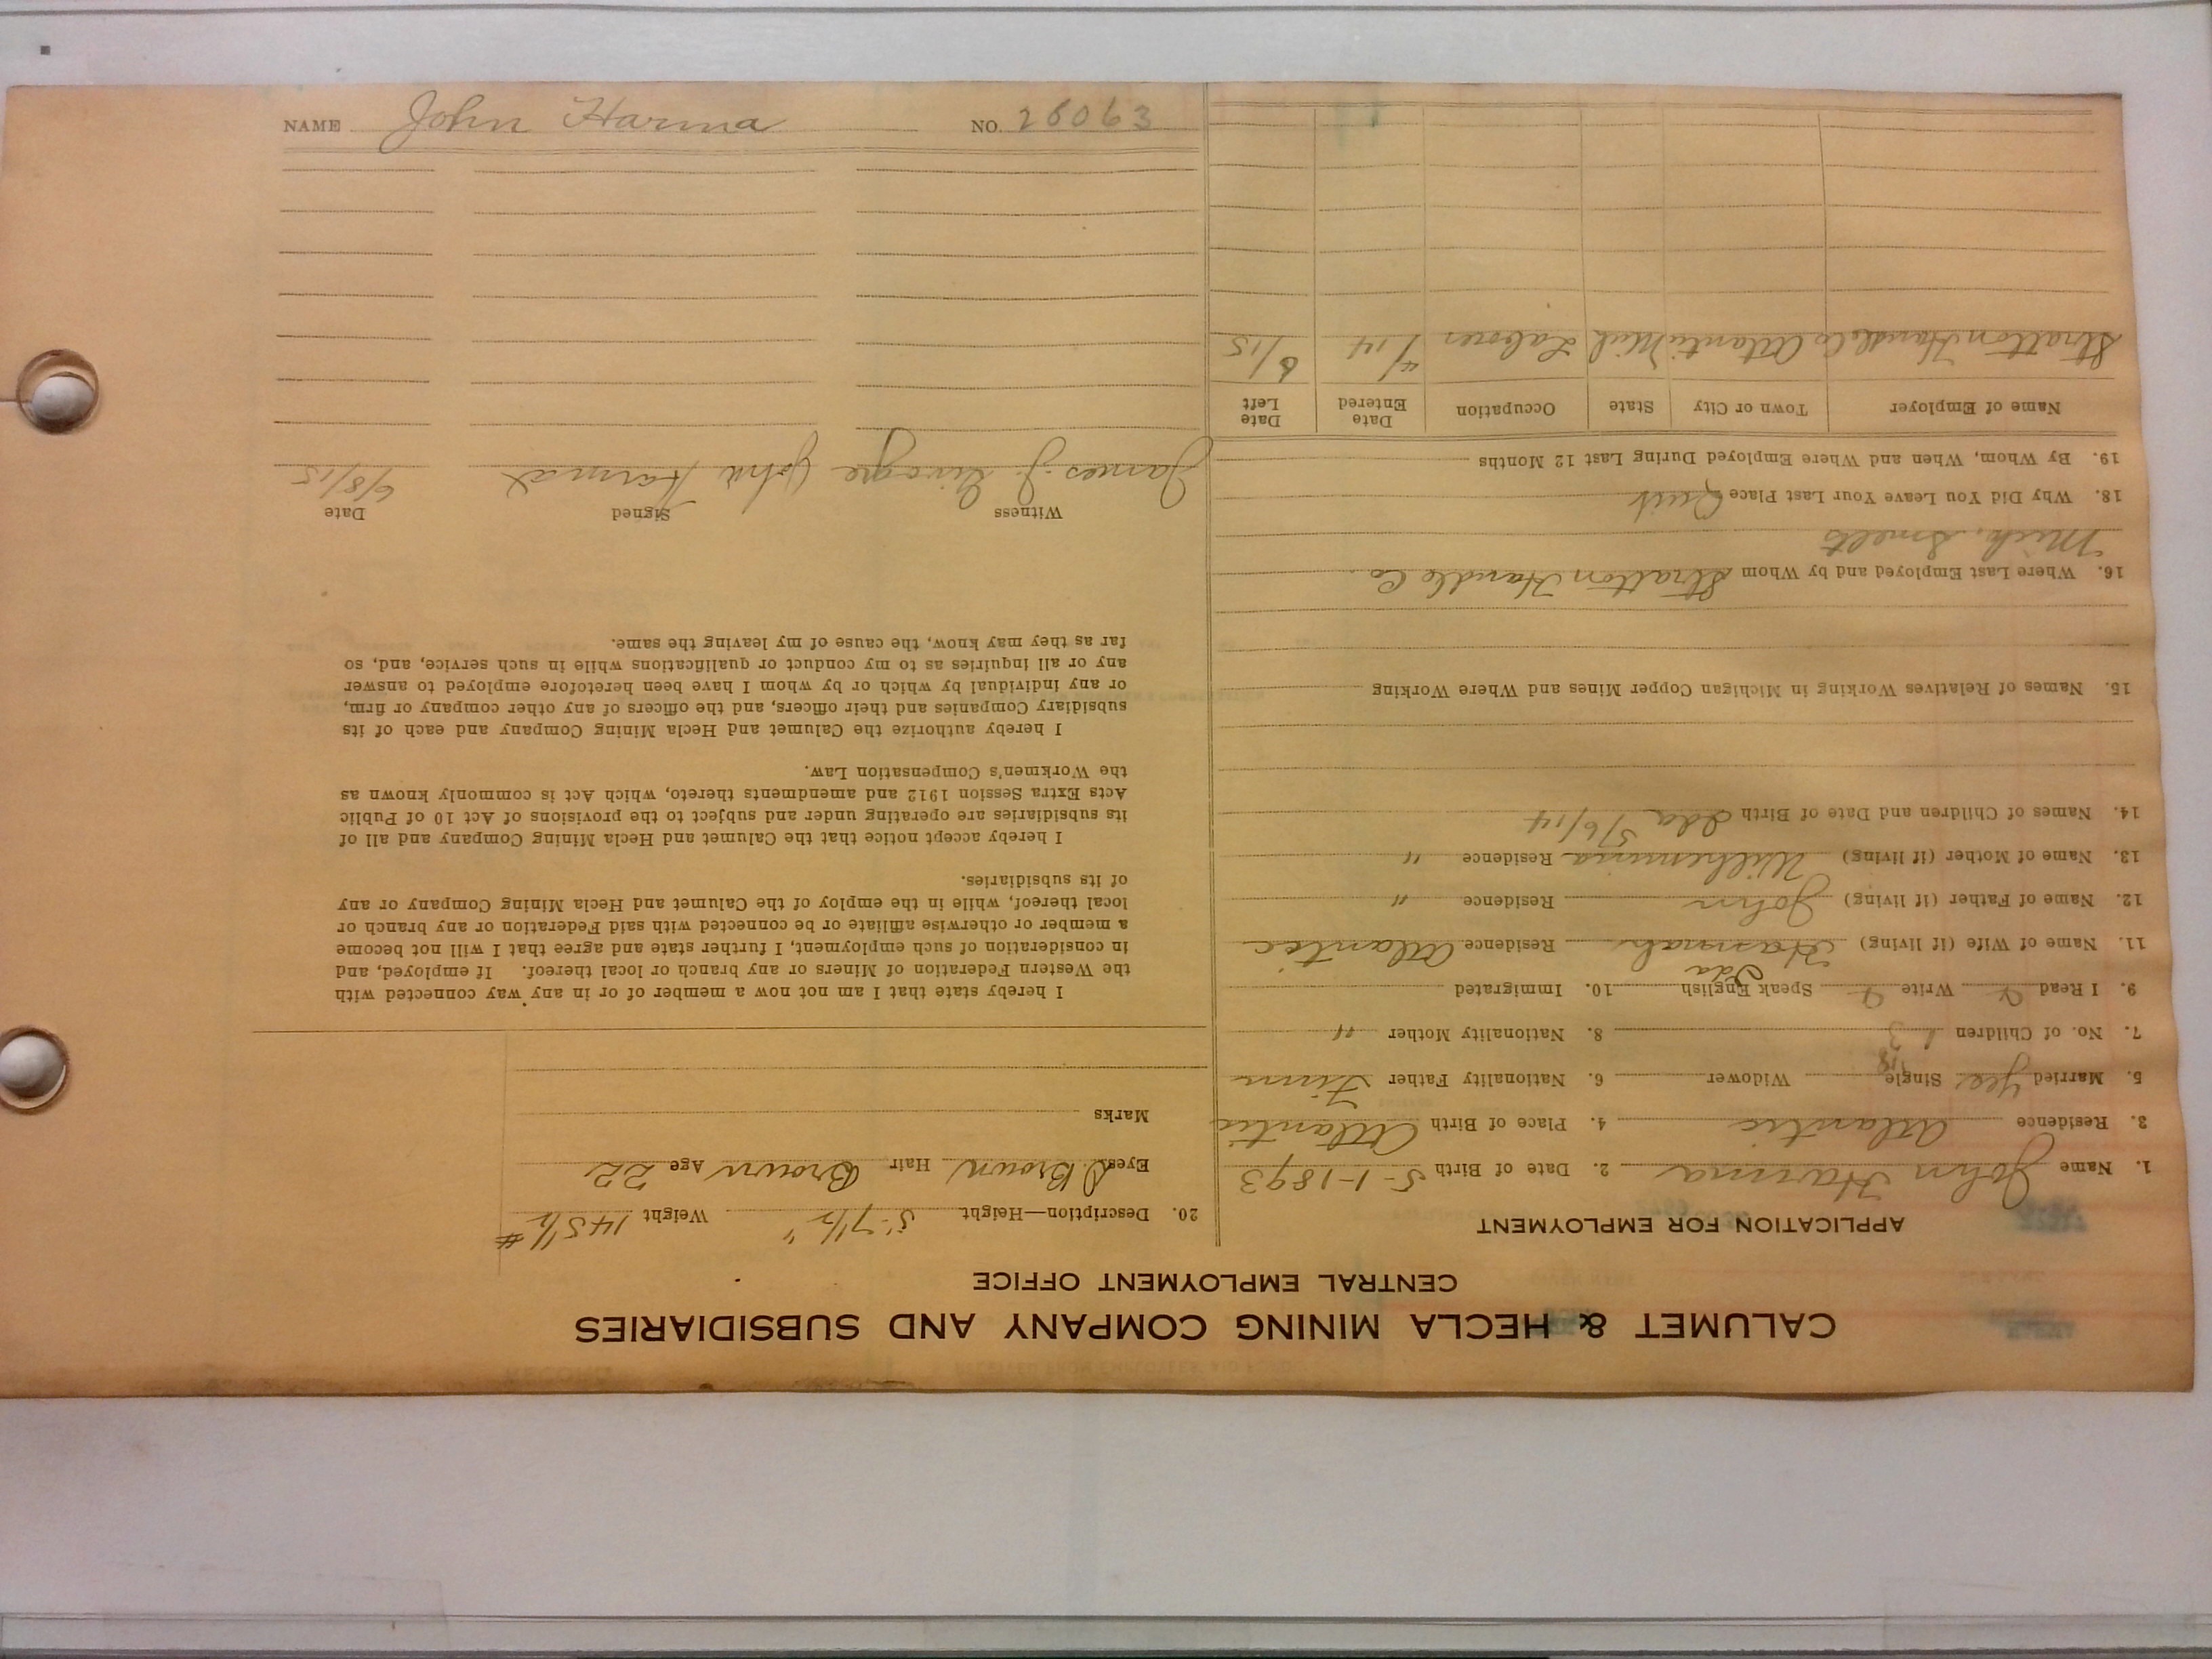 CALUMET & HECLA MINING COMPANY AND SUBSIDIARIES
CENTRAL EMPLOYMENT OFFICE
APPLICATION FOR EMPLOYMENT
1. Name John Harma 2. Date of Birth 5-1-1893
3. Residence Atlantic 4. Place of Birth Atlantic
5. Married Yes Single Widower 6. Nationality Father Finn
7. No. of Children 8. Nationality Mother "
9. I Read Write Speak English 10. Immigrated
Ida
11. Name of Wife (if living) Hannah Residence Atlantic
12. Name of Father (if living) John Residence "
13. Name of Mother (if living) Wilhemina Residence "
14. Names of Children and Date of Birth Ida 5/6/14
15. Names of Relatives Working in Michigan Copper Mines and Where Working
16. Where Last Employed and by Whom Stratton Handle Co.
Mich. Smelt
18. Why Did You Leave Your Last Place Quit
19. By Whom, When and Where Employed During Last 12 Months
Name of Employer Town or City State Occupation Date Entered Date Left
Stratton Handle Co Atlantic Mich Laborer 4/14 6/15
20. Description—Height 5'-7 1/2" Weight 145 1/2 #
Eyes D. Brown Hair Brown Age 22
Marks
I hereby state that I am not now a member of or in any way connected with
the Western Federation of Miners or any branch or local thereof. If employed, and
in consideration of such employment, I further state and agree that I will not become
a member or otherwise affiliate or be connected with said Federation or any branch or
local thereof, while in the employ of the Calumet and Hecla Mining Company or any
of its subsidiaries.
I hereby accept notice that the Calumet and Hecla Mining Company and all of
its subsidiaries are operating under and subject to the provisions of Act 10 of Public
Acts Extra Session 1912 and amendments thereto, which Act is commonly known as
the Workmen's Compensation Law.
I hereby authorize the Calumet and Hecla Mining Company and each of its
subsidiary Companies and their officers, and the officers of any other company or firm,
or any individual by which or by whom I have been heretofore employed to answer
any or all inquiries as to my conduct or qualifications while in such service, and, so
far as they may know, the cause of my leaving the same.
Witness Signed Date
James J. John Harma 6/8/15
NAME John Harma NO. 26063